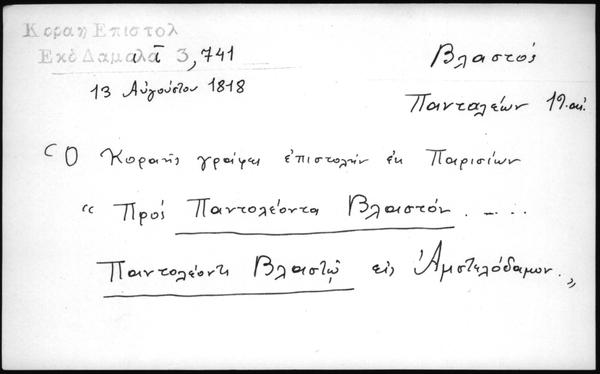 Κοραη Επιστολ
Εκδ Δαμαλᾶ ᾱ 3,741
13 Αὐγούστου 1818
Βλαστός
Πανταλέων 19. αἰ.
Ὁ Κοραῆς γράφει ἐπιστολὴν ἐκ Παρισίων
“ Πρὸς Παντολέοντα Βλαστὸν . — . . .
Παντολέοντι Βλαστῷ εἰς Ἀμστελόδαμον . „